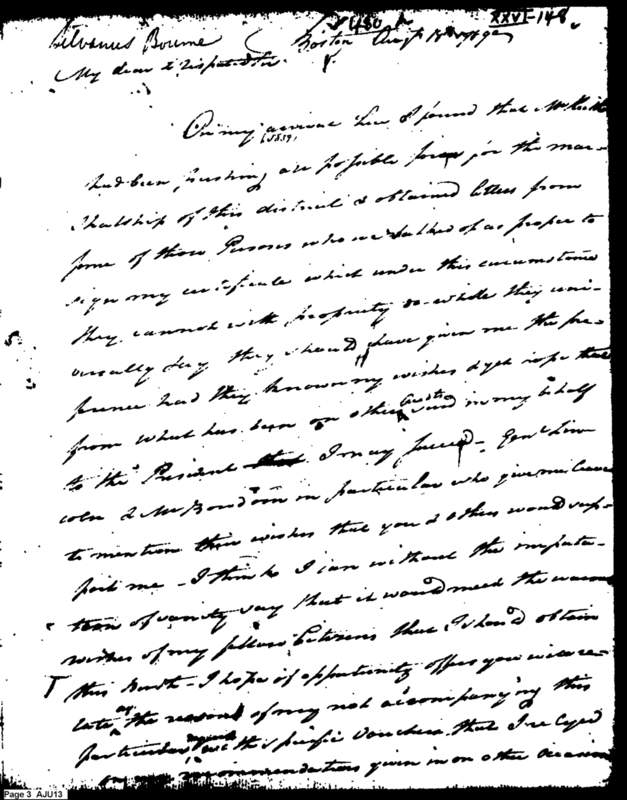 Silvanus Bourne
S 480
XXVI-148
Boston Augt
My dear & respected Sir
On my arrival here I found that Mr
had been pushing all possible for the mar-
shalship of this district & obtained letters from
some of those Persons who we talked of as proper to
sign my certificate which under this circumstance
they cannot with propriety do while they uni-
versally say they should have given me the pre-
ference had they known my wishes & yet hope that
from what has been on other said in my behalf
to the President I may succeed - Genl Lin
coln & Mr Bowdoin in particular who give me leave
to mention their wishes that you & others would sup-
port me - I think I can without the imputa-
tion of vanity say that it would meet the warm
wishes of my fellow Citizens that I should obtain
this Birth - I hope if opportunity offers you will re-
late the reasons of my not accompanying this
particular with specific vouchers, that I relyed
on recommendations given in on other occasion
Page 3 AJU13